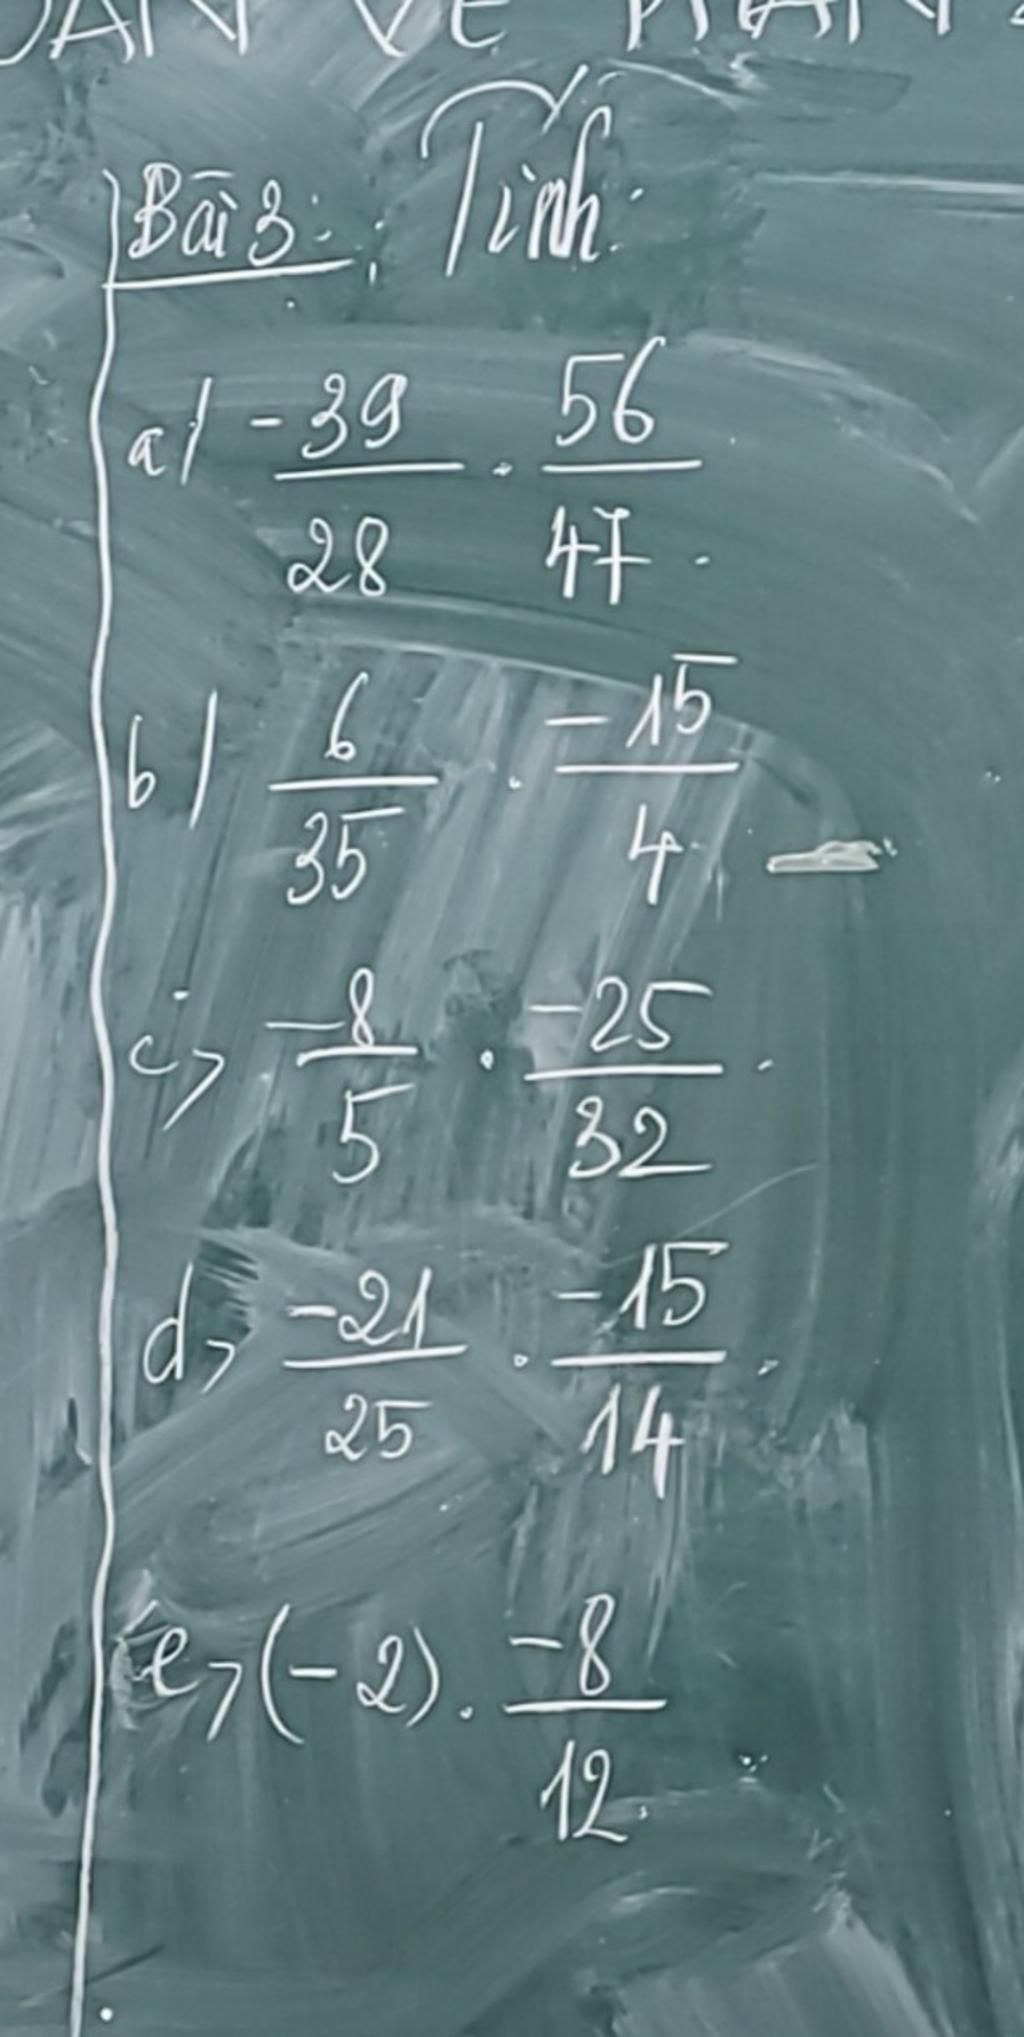 OÁN VỀ PHÂN
Bài 3: Tính:
a/ -39/28 . 56/47
b/ 6/35 . -15/4
c> -8/5 . -25/32
d> -21/25 . -15/14
e> (-2) . -8/12